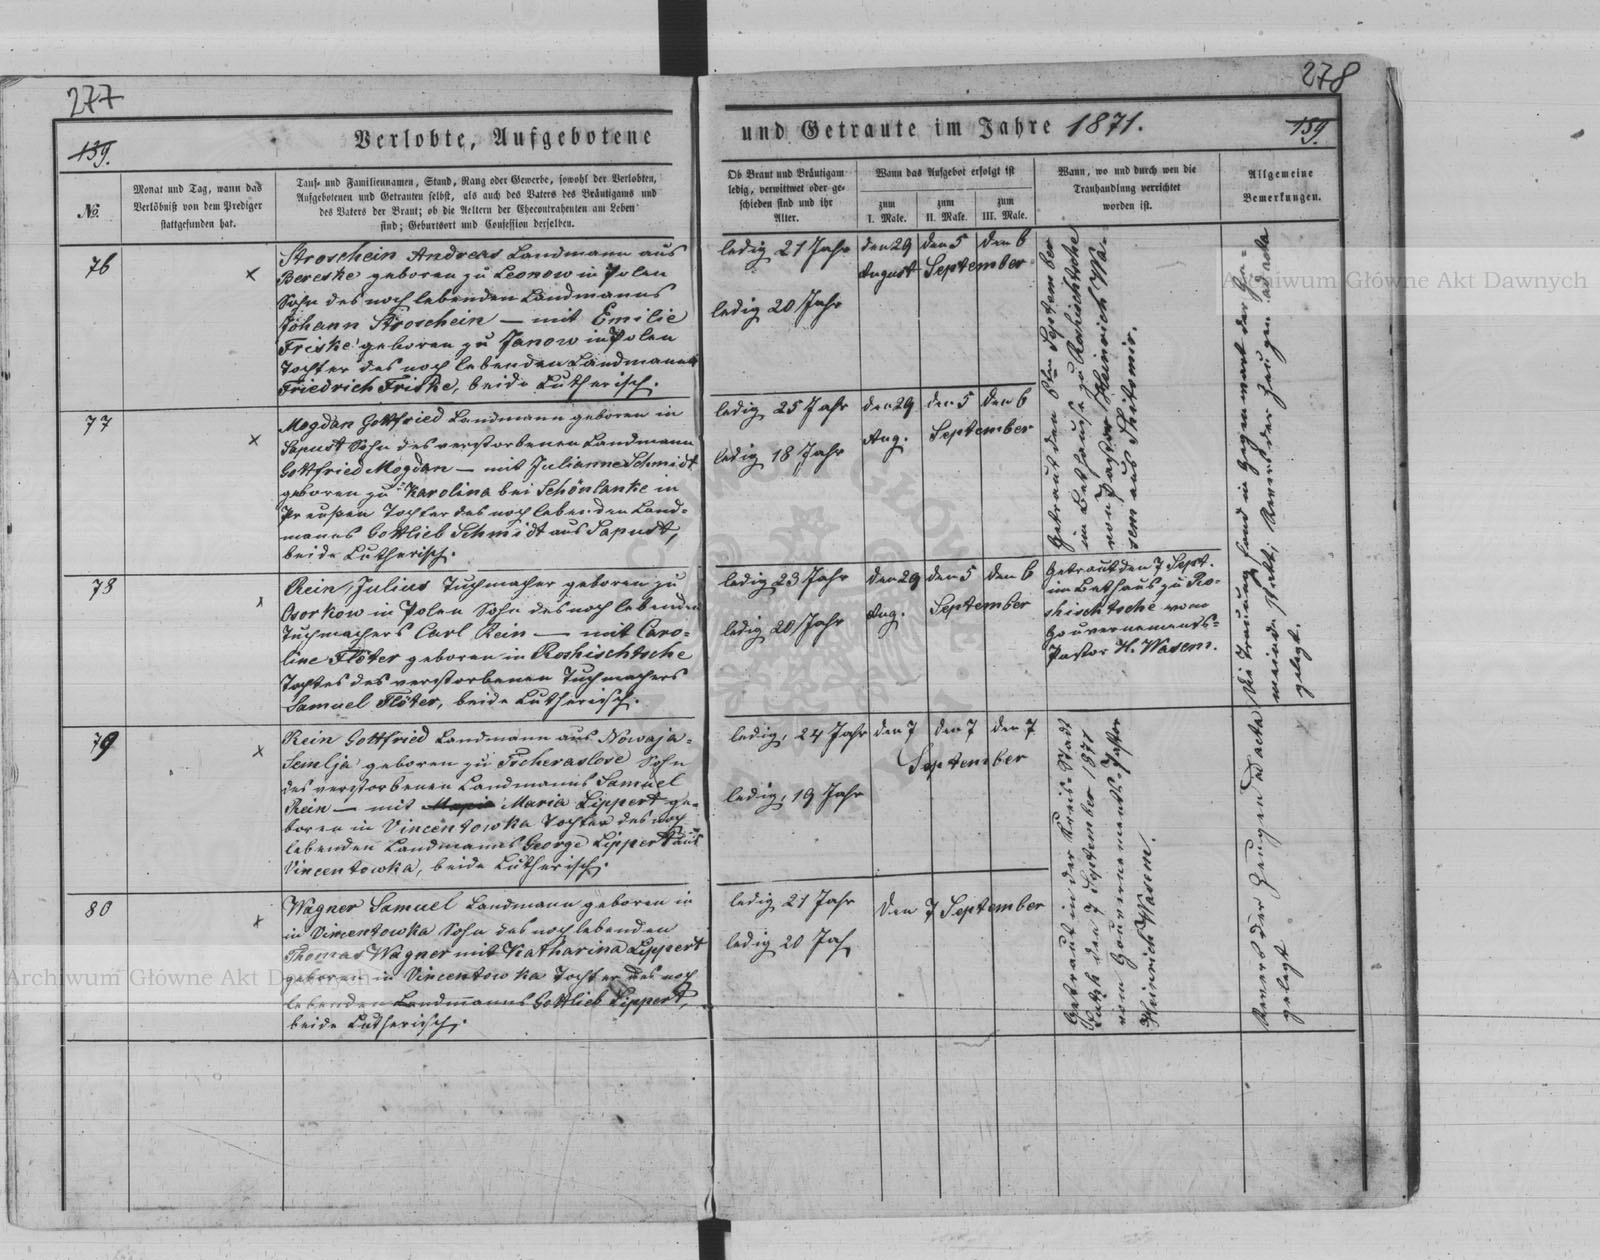 277
278
139.
Verlobte, Aufgebotene
und Getraute im Jahre 1871.
159.
No.
Monat und Tag, wann das
Verlöbniß von dem Prediger
stattgefunden hat.
Tauf- und Familiennamen, Stand, Rang oder Gewerbe, sowohl der Verlobten,
Aufgebotenen und Getrauten selbst, als auch des Vaters des Bräutigams und
des Vaters der Braut; ob die Aeltern der Ehecontrahenten am Leben
sind; Geburtsort und Confession derselben.
Ob Braut und Bräutigam
ledig, verwittwet oder ge-
schieden sind und ihr
Alter.
Wann das Aufgebot erfolgt ist
zum
I. Male.
zum
II. Male.
zum
III. Male.
Wann, wo und durch wen die
Trauhandlung verrichtet
worden ist.
Allgemeine
Bemerkungen.
76
x
Stroschein Andreas Landmann aus
Bereske geboren zu Leonow in Polen
Sohn des noch lebenden Landmanns
Johann Stroschein — mit Emilie
Friske geboren zu Janow in Polen
Tochter des noch lebenden Landmanns
Friedrich Friske, beide Lutherisch.
ledig 21 Jahr
ledig 20 Jahr
den 29
August
den 5
den 6
September
Getraut den 8ten September
im Bethause zu Roshischtsche
von Pastor Heinrich Wa-
sem aus Shitomir.
77
x
Mogdan Gottfried Landmann geboren in
Sapust Sohn des verstorbenen Landmann
Gottfried Mogdan — mit Julianne Schmidt
geboren zu Karolina bei Schönlanke in
Preußen Tochter des noch lebenden Land-
manns Gottlieb Schmidt aus Sapust,
beide Lutherisch.
ledig 25 Jahr
ledig 18 Jahr
den 29
Aug.
den 5
den 6
September
78
x
Rein, Julius Tuchmacher geboren zu
Osorkow in Polen Sohn des noch lebenden
Tuchmachers Carl Rein — mit Caro-
line Flöter geboren in Roshischtsche
Tochter des verstorbenen Tuchmachers
Samuel Flöter, beide Lutherisch.
ledig 23 Jahr
ledig 20 Jahr
den 29
Aug.
den 5
den 6
September
Getraut den 7 Sept.
im Bethaus zu Ro-
shischtsche vom
Gouvernements-
Pastor H. Wasem.
Die Trauung fand in Gegenwart der Ge-
meinde statt; Revers der Zeugen ad acta
gelegt.
79
x
Rein Gottfried Landmann aus Nowaja-
Semlja geboren zu Tscheraslose Sohn
des verstorbenen Landmanns Samuel
Rein — mit Maria Lippert ge-
boren in Vincentowka Tochter des noch
lebenden Landmanns George Lippert aus
Vincentowka, beide Lutherisch.
ledig, 24 Jahr
ledig, 19 Jahr
den 7
den 7
den 7
September
Getraut in der Kreis-Stadt
Lutzk den 7 September 1871
vom Gouvernements-Pastor
Heinrich Wasem.
Revers der Zeugen ad acta
gelegt
80
x
Wagner Samuel Landmann geboren in
in Vincentowka Sohn des noch lebenden
Thomas Wagner mit Katharina Lippert
geboren in Vincentowka Tochter des noch
lebenden Landmanns Gottlieb Lippert,
beide Lutherisch.
ledig 21 Jahr
ledig 20 Jah
den 7 September
Archiwum Główne Akt Dawnych
Archiwum Główne Akt Dawnych